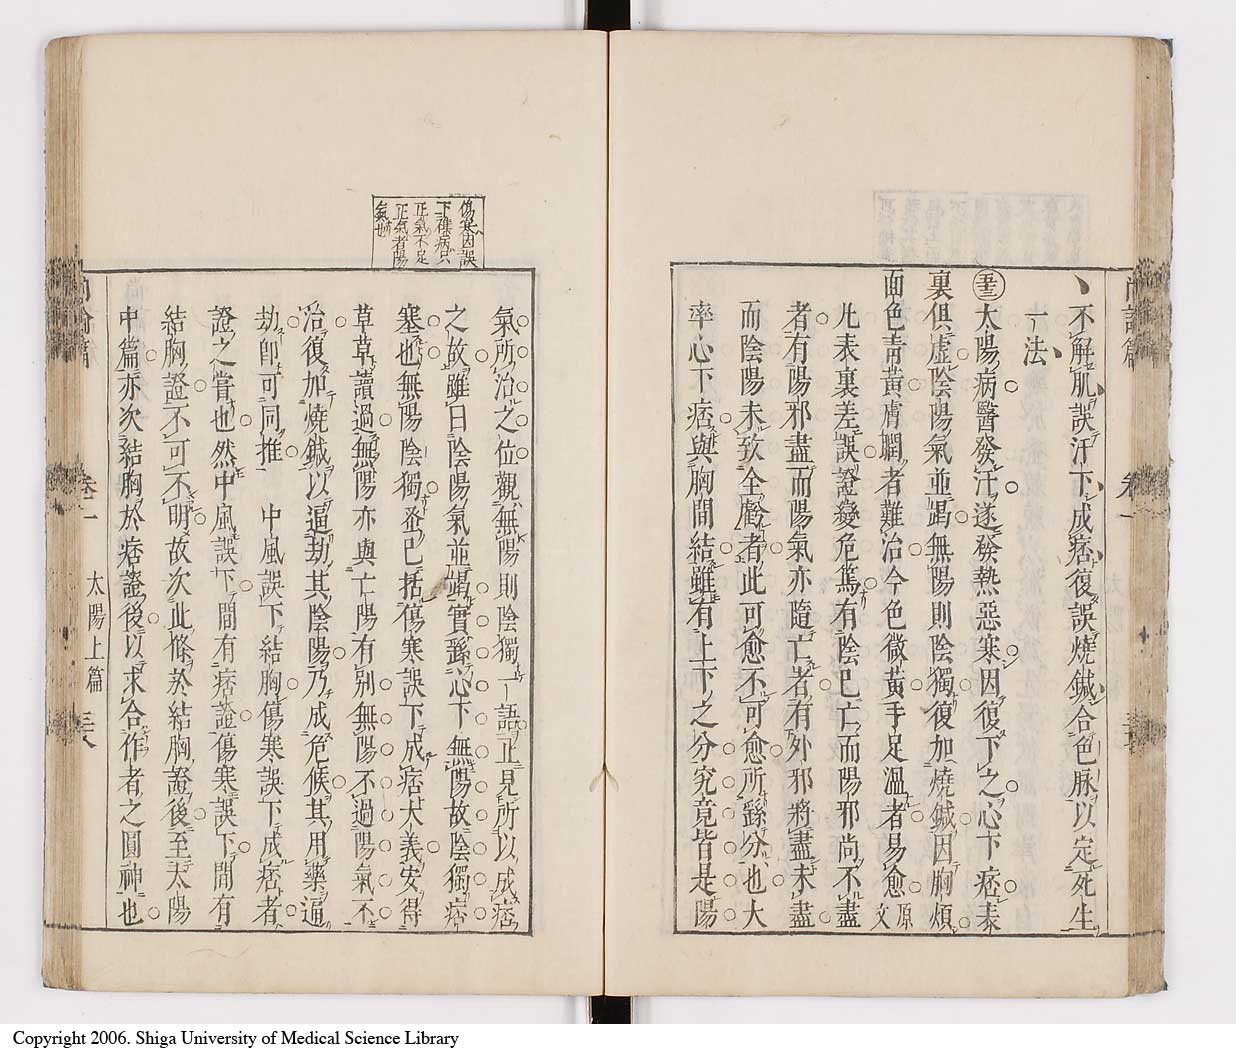 不解肌誤汗下成痞復誤燒鍼合色脉以定死生
一法
太陽病醫發汗遂發熱惡寒因復下之心下痞表
裏俱虛陰陽氣並竭無陽則陰獨復加燒鍼因胸煩
面色青黃膚瞤者難治今色微黃手足溫者易愈原文
凢表裏差誤證變危篤有陰巳亡而陽邪尚不盡
者有陽邪盡而陽氣亦隨亡者有外邪將盡未盡
而陰陽未致全虧者此可愈不可愈所繇分也大
率心下痞與胸間結雖有上下之分究竟皆是陽
傷寒因誤
下襍病只
正氣不足
正氣者陽
氣也
氣所治之位觀無陽則陰獨一語正見所以成痞
之故雖曰陰陽氣並竭實繇心下無陽故陰獨痞
塞也無陽陰獨叁巳括傷寒誤下成痞大義安得
草草讀過無陽亦與亡陽有別無陽不過陽氣不
治復加燒鍼以逼劫其陰陽乃成危候其用藥逼
劫卽可同推 中風誤下結胸傷寒誤下成痞者
證之嘗也然中風誤下間有痞證傷寒誤下間有
結胸證不可不明故次此條於結胸證後至太陽
中篇亦次結胸於痞證後以求合作者之圓神也
卷一
太陽上篇
Copyright 2006. Shiga University of Medical Science Library